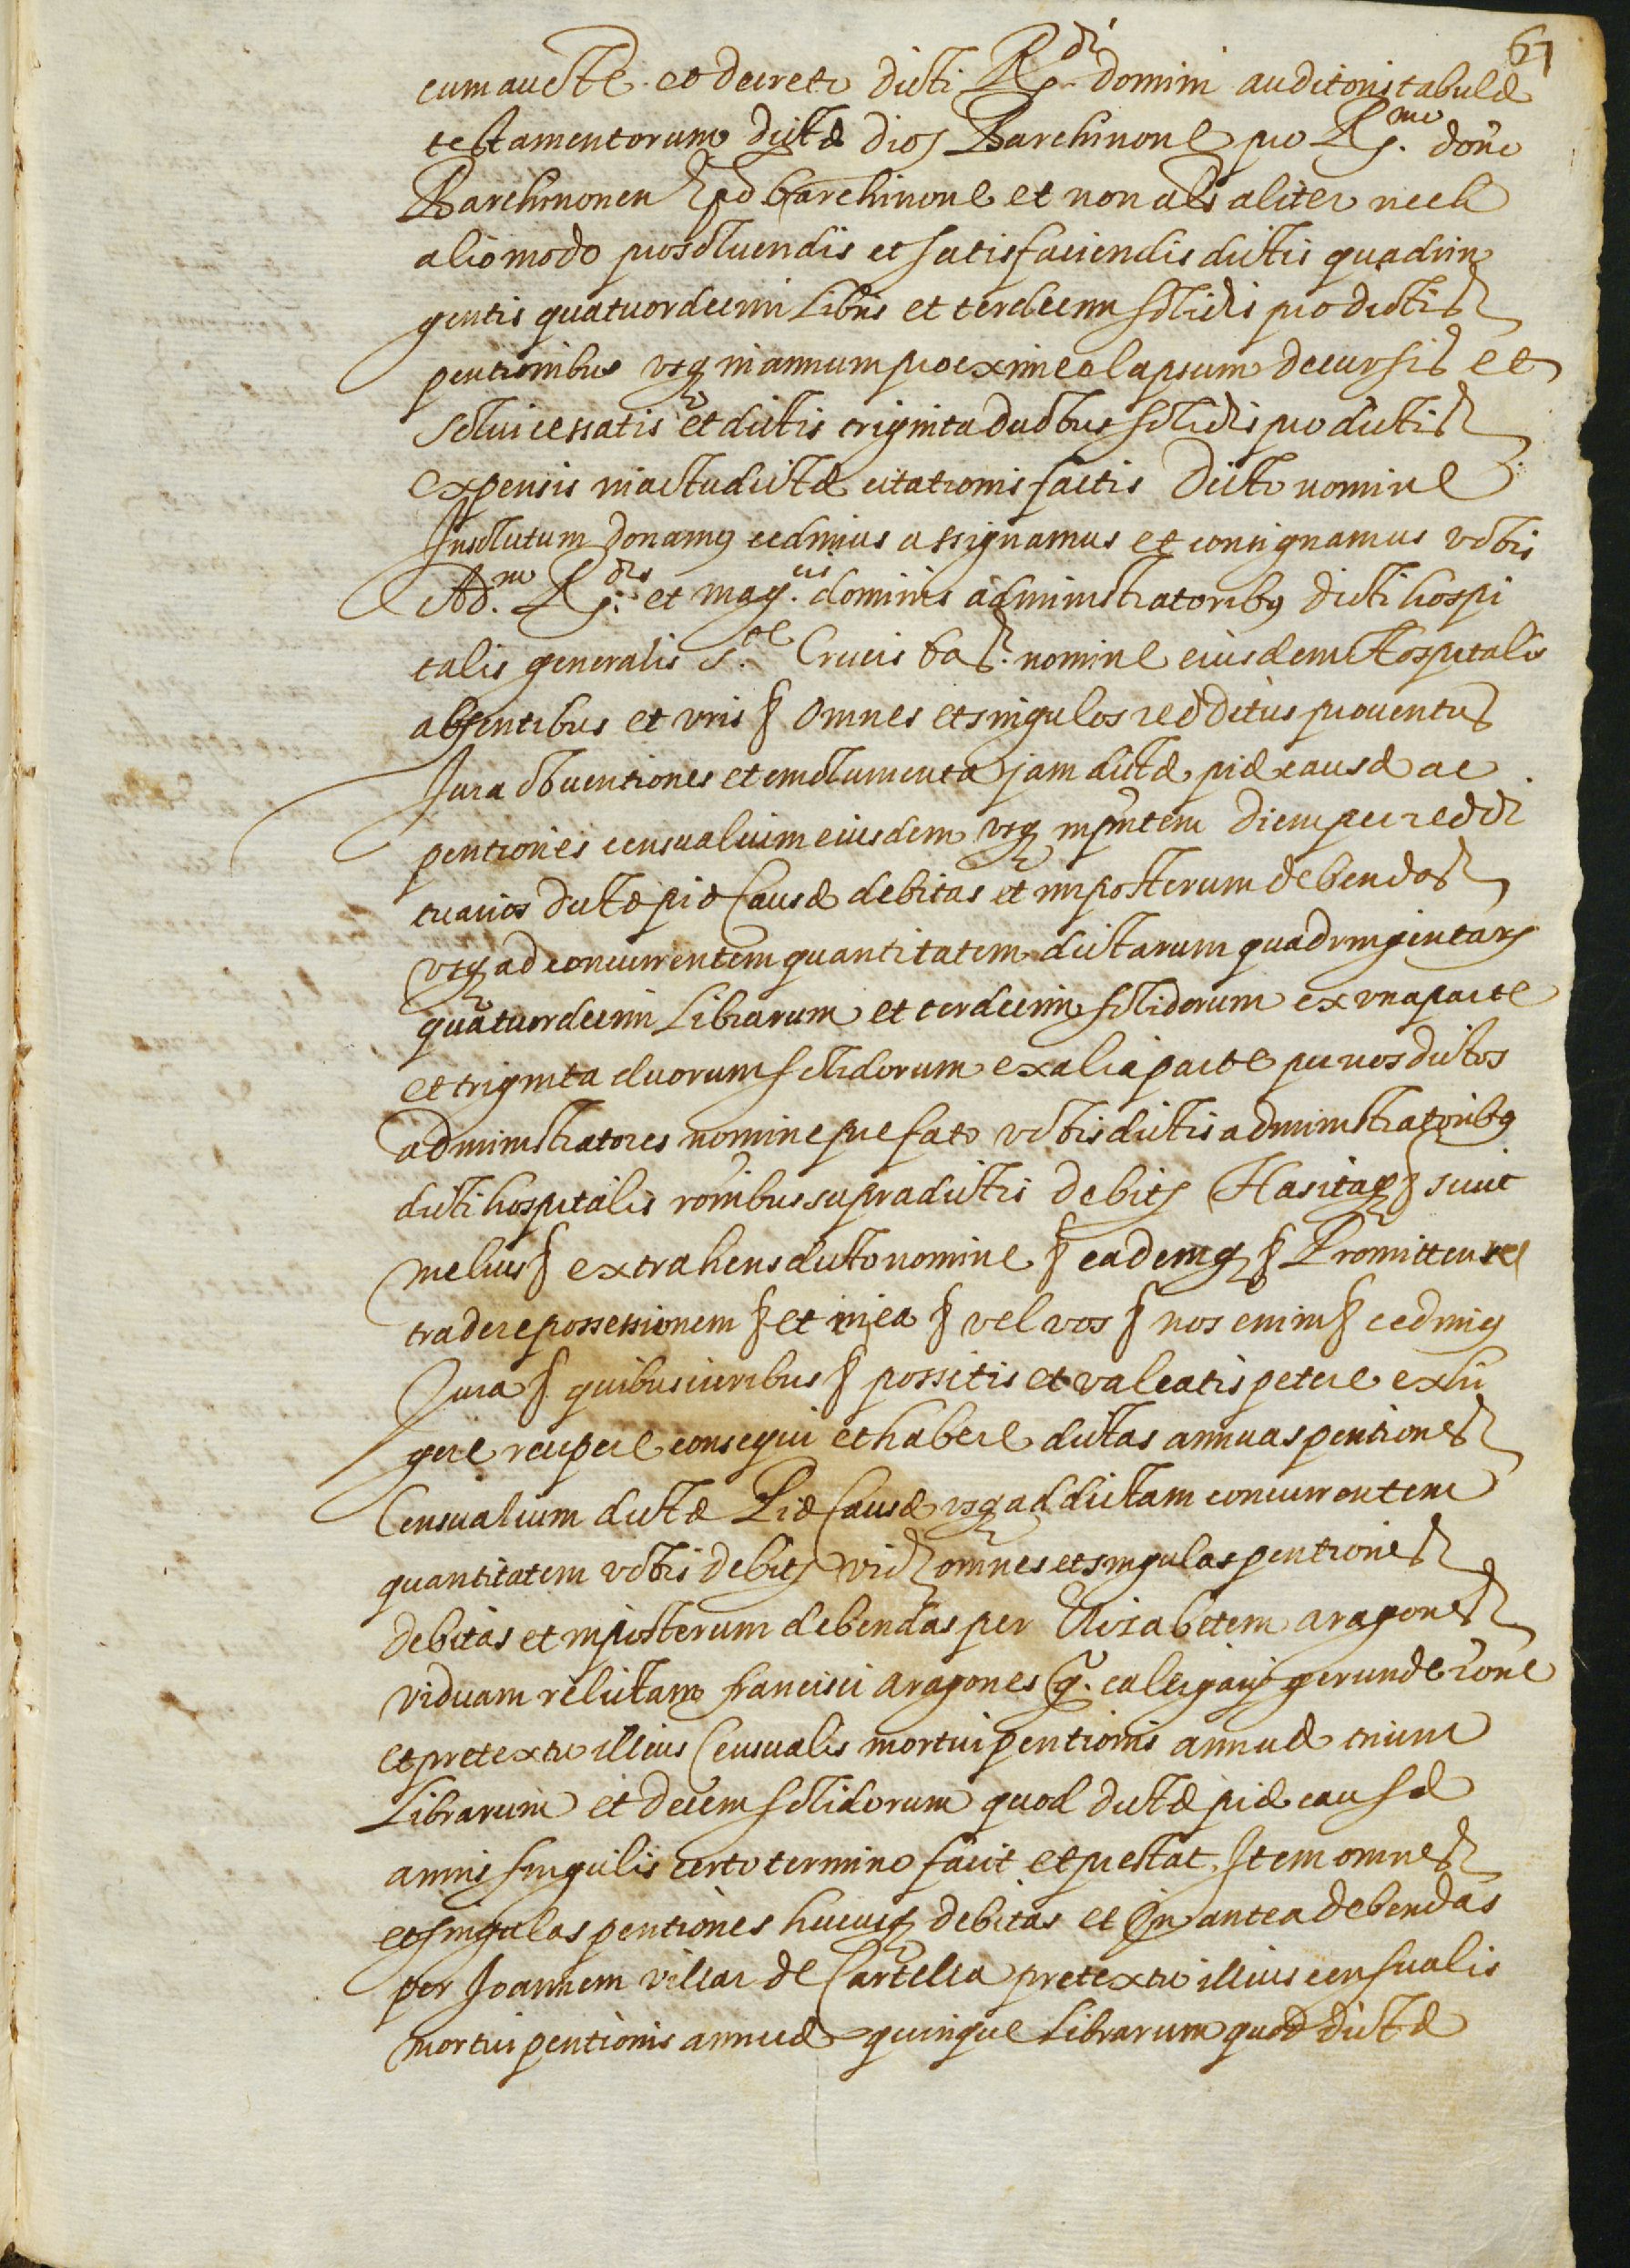 61
cum aucte. et decreto dicti R.di domini auditoris tabulæ
testamentorum dictæ dios Barchinone pro R.mo dono
Barchinonen Epo barchinone et non als aliter nech
alio modo prosoluendis et satisfaciendis dictis quadrin
gentis quatuordecim libris et terdecim solidis pro dictis
pentionibus vsq in annum proexime elapsum decursis et
solui cessatis et dictis triginta duobus solidis pro dictis
expensis in actu dictæ citationis factis Dicto nomine
Insolutum donamus cedimus assignamus et consignamus vobis
Ad.m R.dis et mag.cis dominis administratoribus dicti hospi
talis generalis S.tæ Crucis bar. nomine eiusdem Hospitalis
absentibus et vris § Omnes et singulos redditus prouentus
Jura obuentiones et emolumenta jam dictæ piæ causæ ac
pentiones censualium eiusdem vsq in pntem diem per reddi
tuarios dictæ piæ Causæ debitas et imposterum debendas
vsq ad concurrentem quantitatem dictarum quadringentars
quatuordecim Librarum et terdecim solidorum ex vna parte
et triginta duorum solidorum ex alia parte per nos dictos
administratores nomine prefato vobis dictis administratoribus
dicti hospitalis ronibus supradictis debits Hasitaq § sicut
melius § extrahens dicto nomine § eademq § Promittens
tradere possessionem § et in ea § vel vos § nos enim § cedimus
Jura § quibus iuribus § possitis et valeatis petere exhi
gere recipere consequi et habere dictas annuas pentiones
Censualium dictæ Piæ Causæ vsq ad dictam concurrentem
quantitatem vobis debits vidz omnes et singulas pentiones
debitas et imposterum debendas per Elizabetem aragones
viduam relictam francisci Aragones q. calligarij gerundæ rone
et pretextu illius Censualis mortui pentionis annuæ trium
Librarum et decem solidorum quod dictæ piæ causæ
annis singulis certo termino facit et prestat. Item omnes
et singulas pentiones hucusq debitas et in antea debendas
per Joannem villar de Cartella pretextu illius censualis
mortui pentionis annuæ quinque Librarum quod dictæ